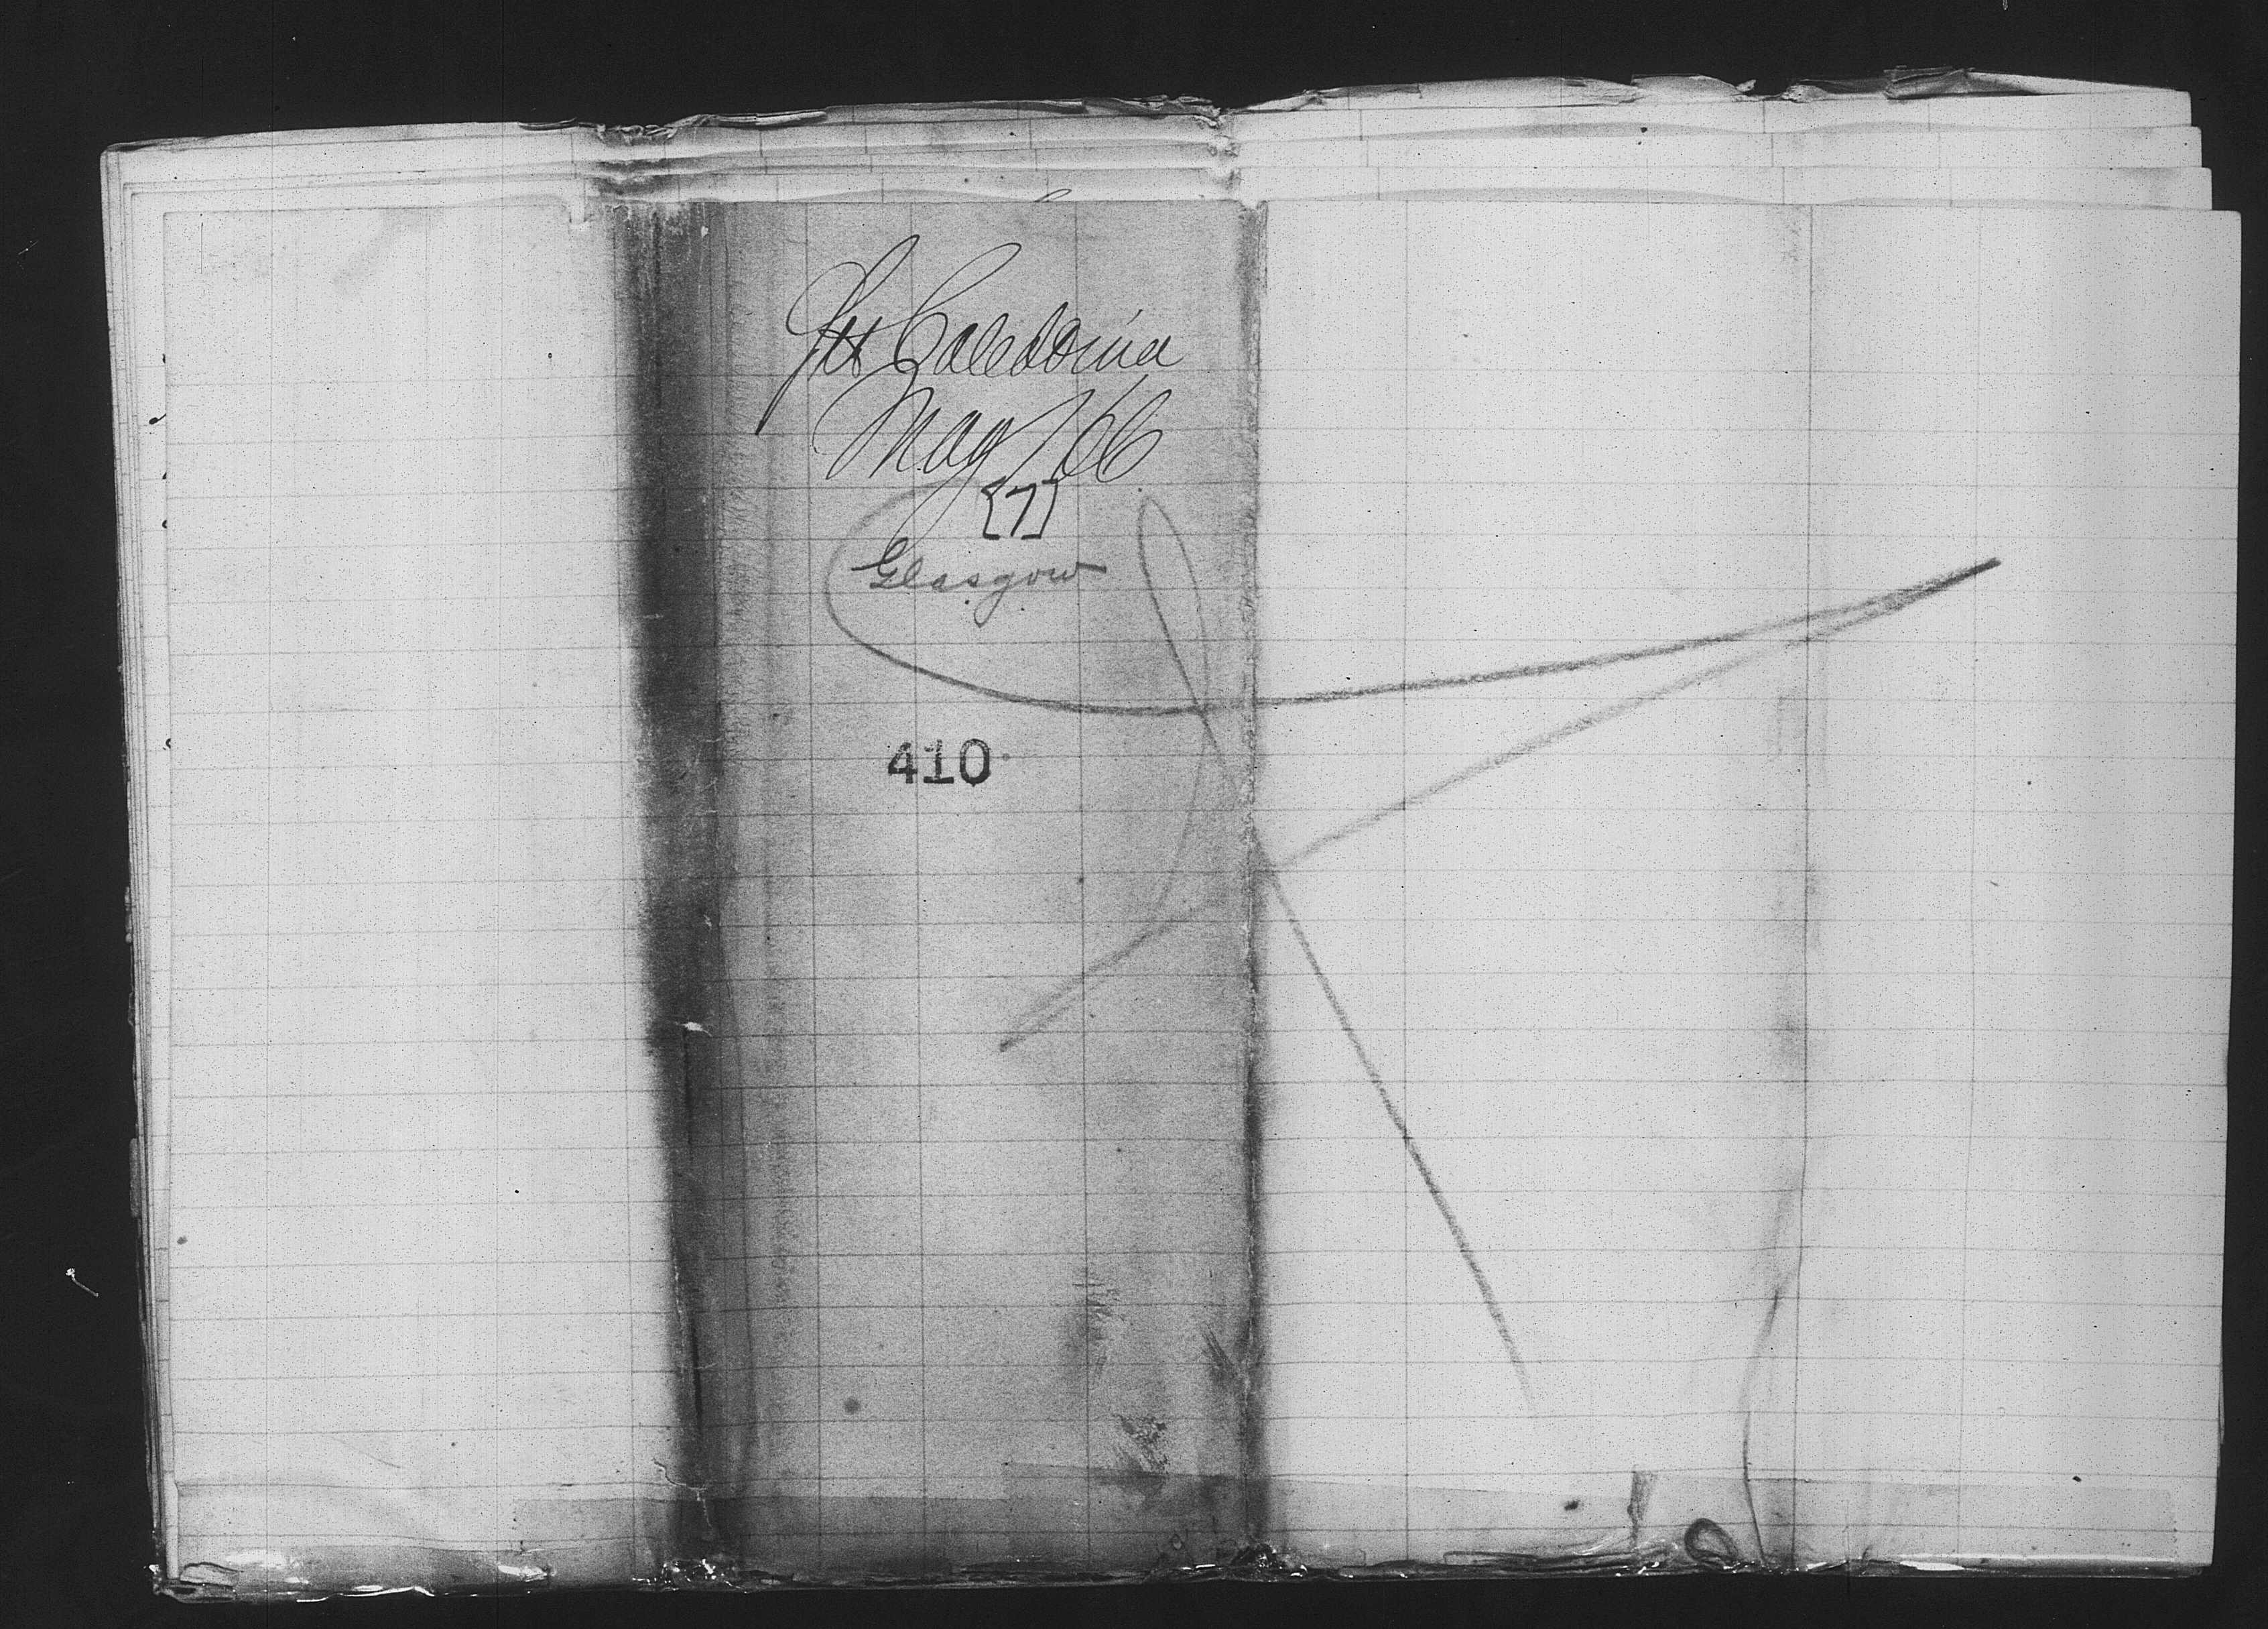 Str Caledonia
May 7/66
[7]
Glasgow
410